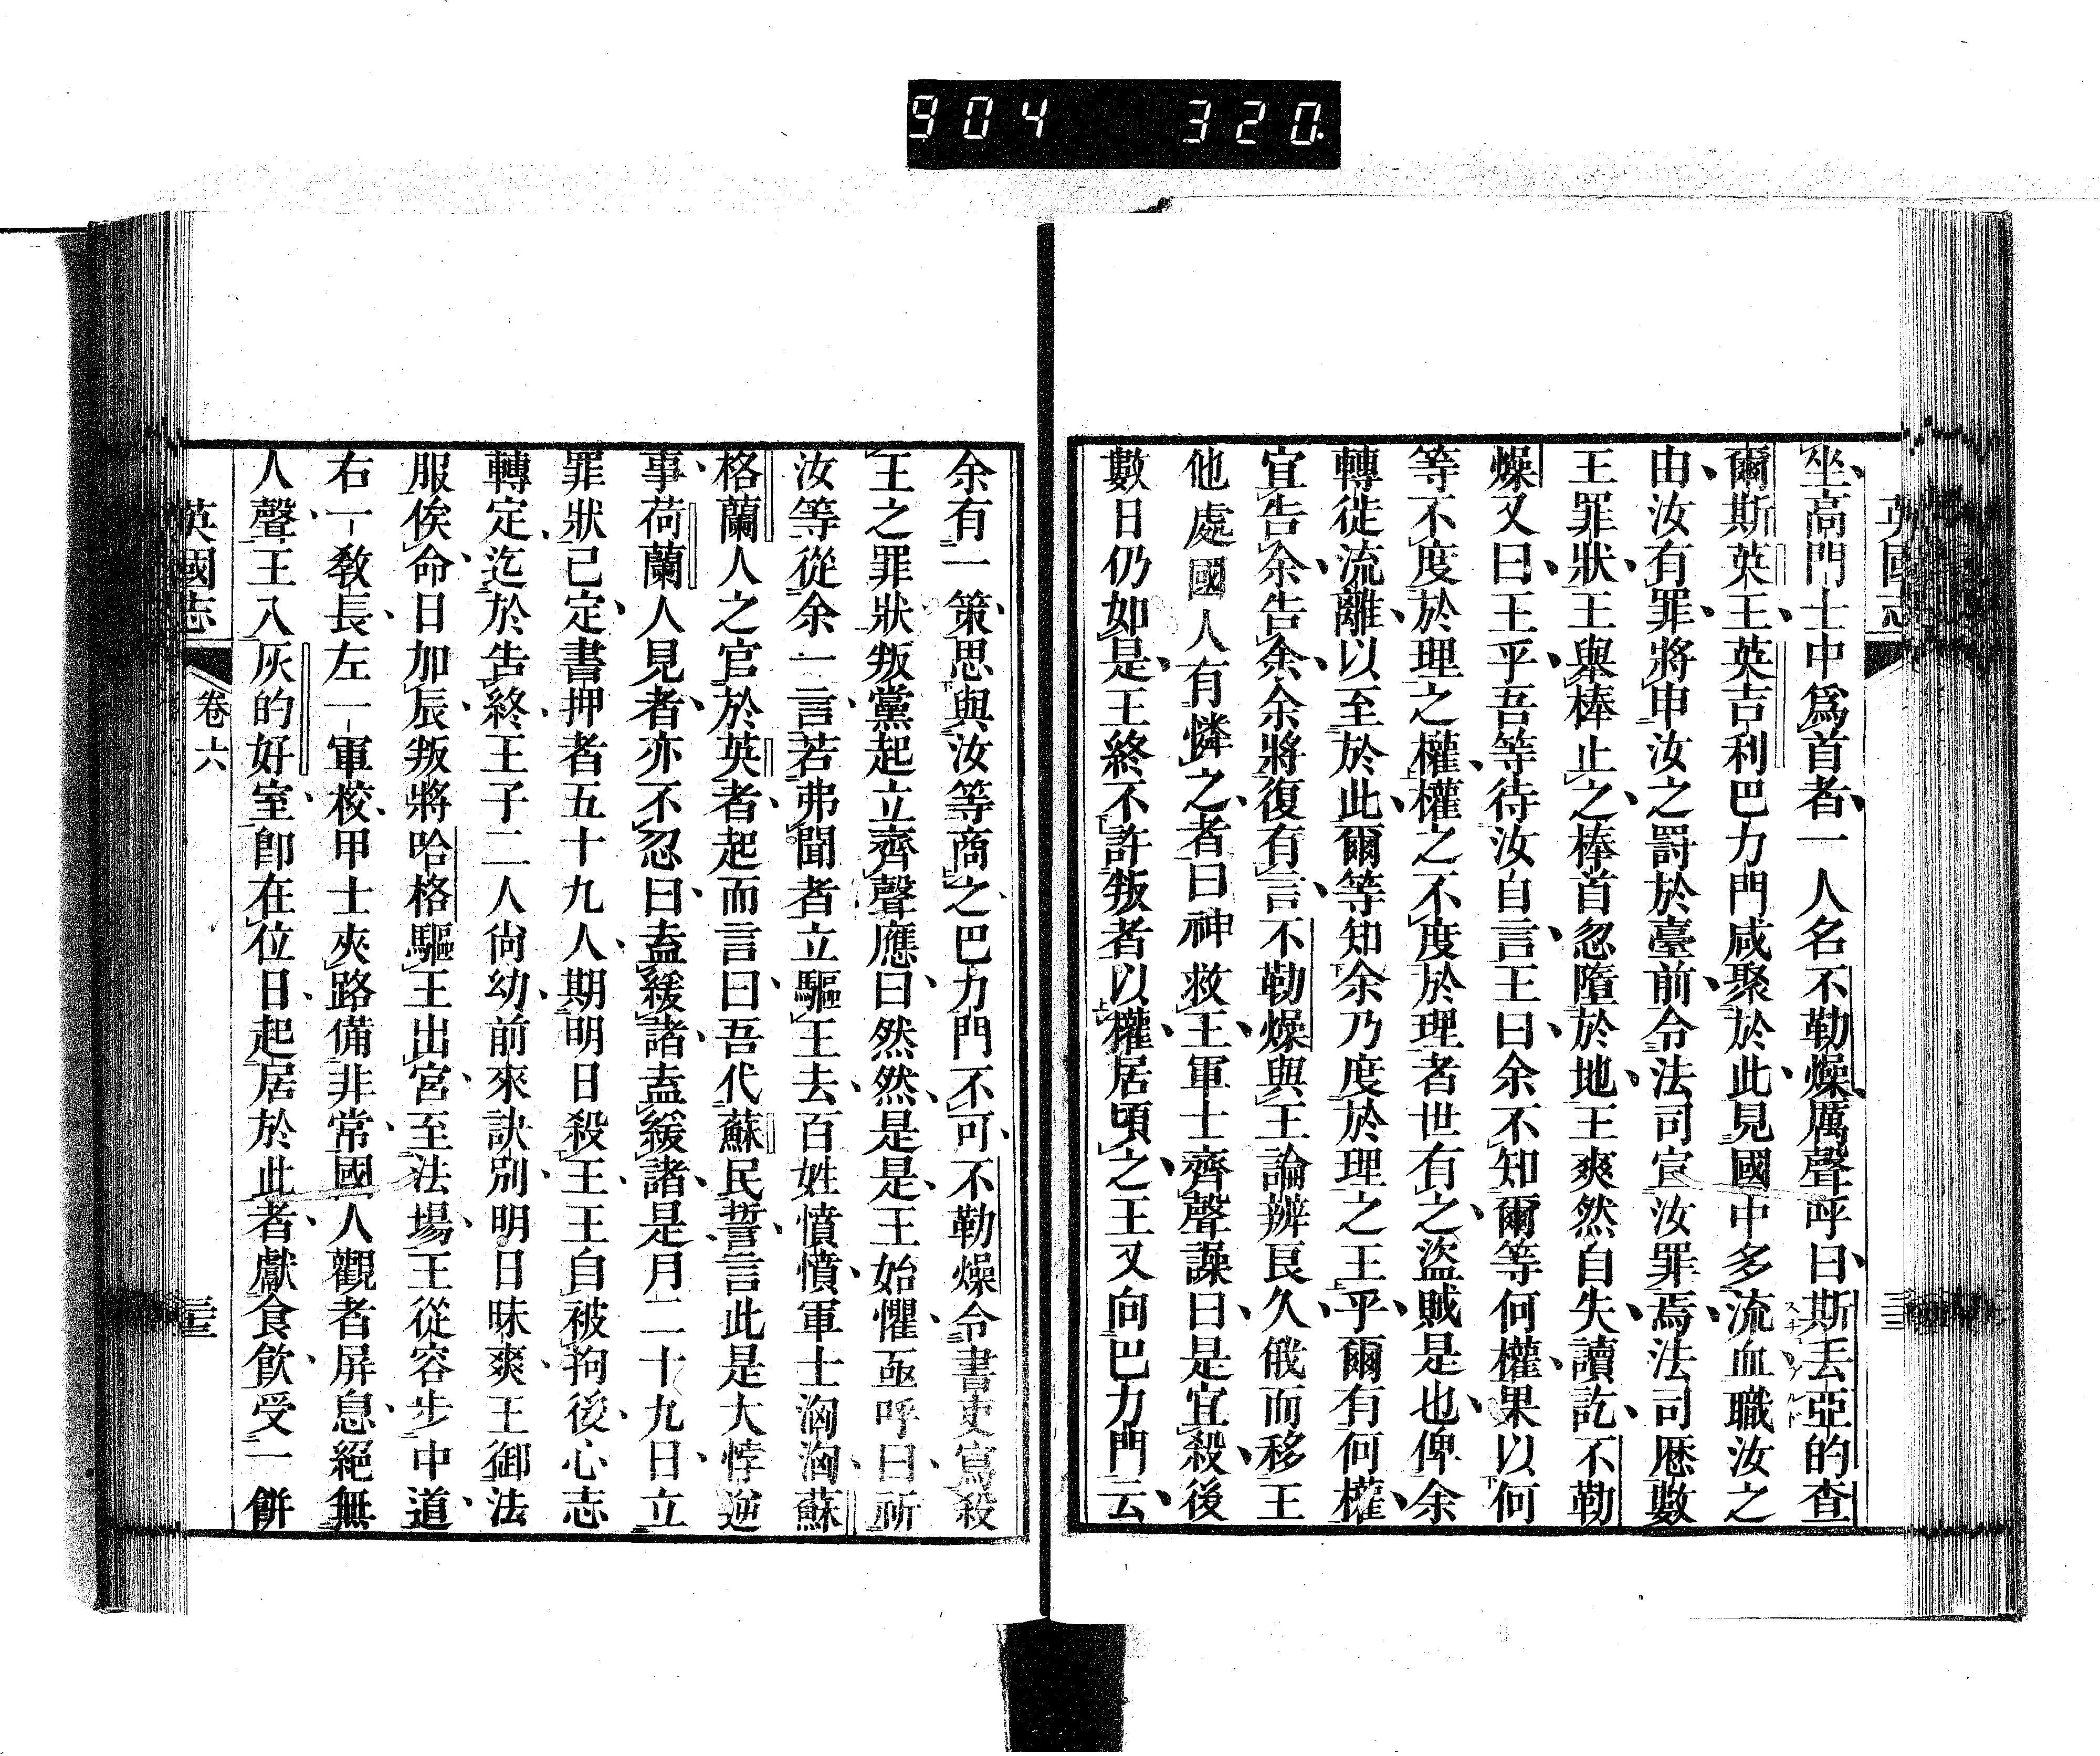 904 320
英國志
坐高門士中爲首者一人名不勒燥厲聲呼曰斯丢亞的查
爾斯英王英吉利巴力門咸聚於此見國中多流血職汝之
由汝有罪將申汝之罸於臺前令法司宣汝罪焉法司厯數
王罪狀王舉棒止之棒首忽墮於地王爽然自失讀訖不勒
燥又曰王乎吾等待汝自言王曰余不知爾等何權果以何
等不度於理之權權之不度於理者世有之盜賊是也俾余
轉徙流離以至於此爾等知余乃度於理之王乎爾有何權
宜告余告余余將復有言不勒燥與王論辨良久俄而移王
他處國人有憐之者曰神救王軍士齊聲譟曰是宜殺後
數日仍如是王終不許叛者以權居頃之王又向巴力門云
余有一策思與汝等商之巴力門不可不勒燥令書吏寫殺
王之罪狀叛黨起立齊聲應曰然然是是王始懼亟呼曰祈
汝等從余一言若弗聞者立驅王去百姓憤憤軍士洶洶蘇
格蘭人之官於英者起而言曰吾代蘇民誓言此是大悖逆
事荷蘭人見者亦不忍曰盍緩諸盍緩諸是月二十九日立
罪狀已定書押者五十九人期明日殺王王自被拘後心志
轉定迄於告終王子二人尙幼前來訣別明日昧爽王御法
服俟命日加辰叛將哈格驅王出宮至法場王從容步中道
右一敎長左一軍校甲士夾路備非常國人觀者屏息絕無
人聲王入灰的好室卽在位日起居於此者獻食飮受一餠
英國志 卷六 三三
スチュアルト